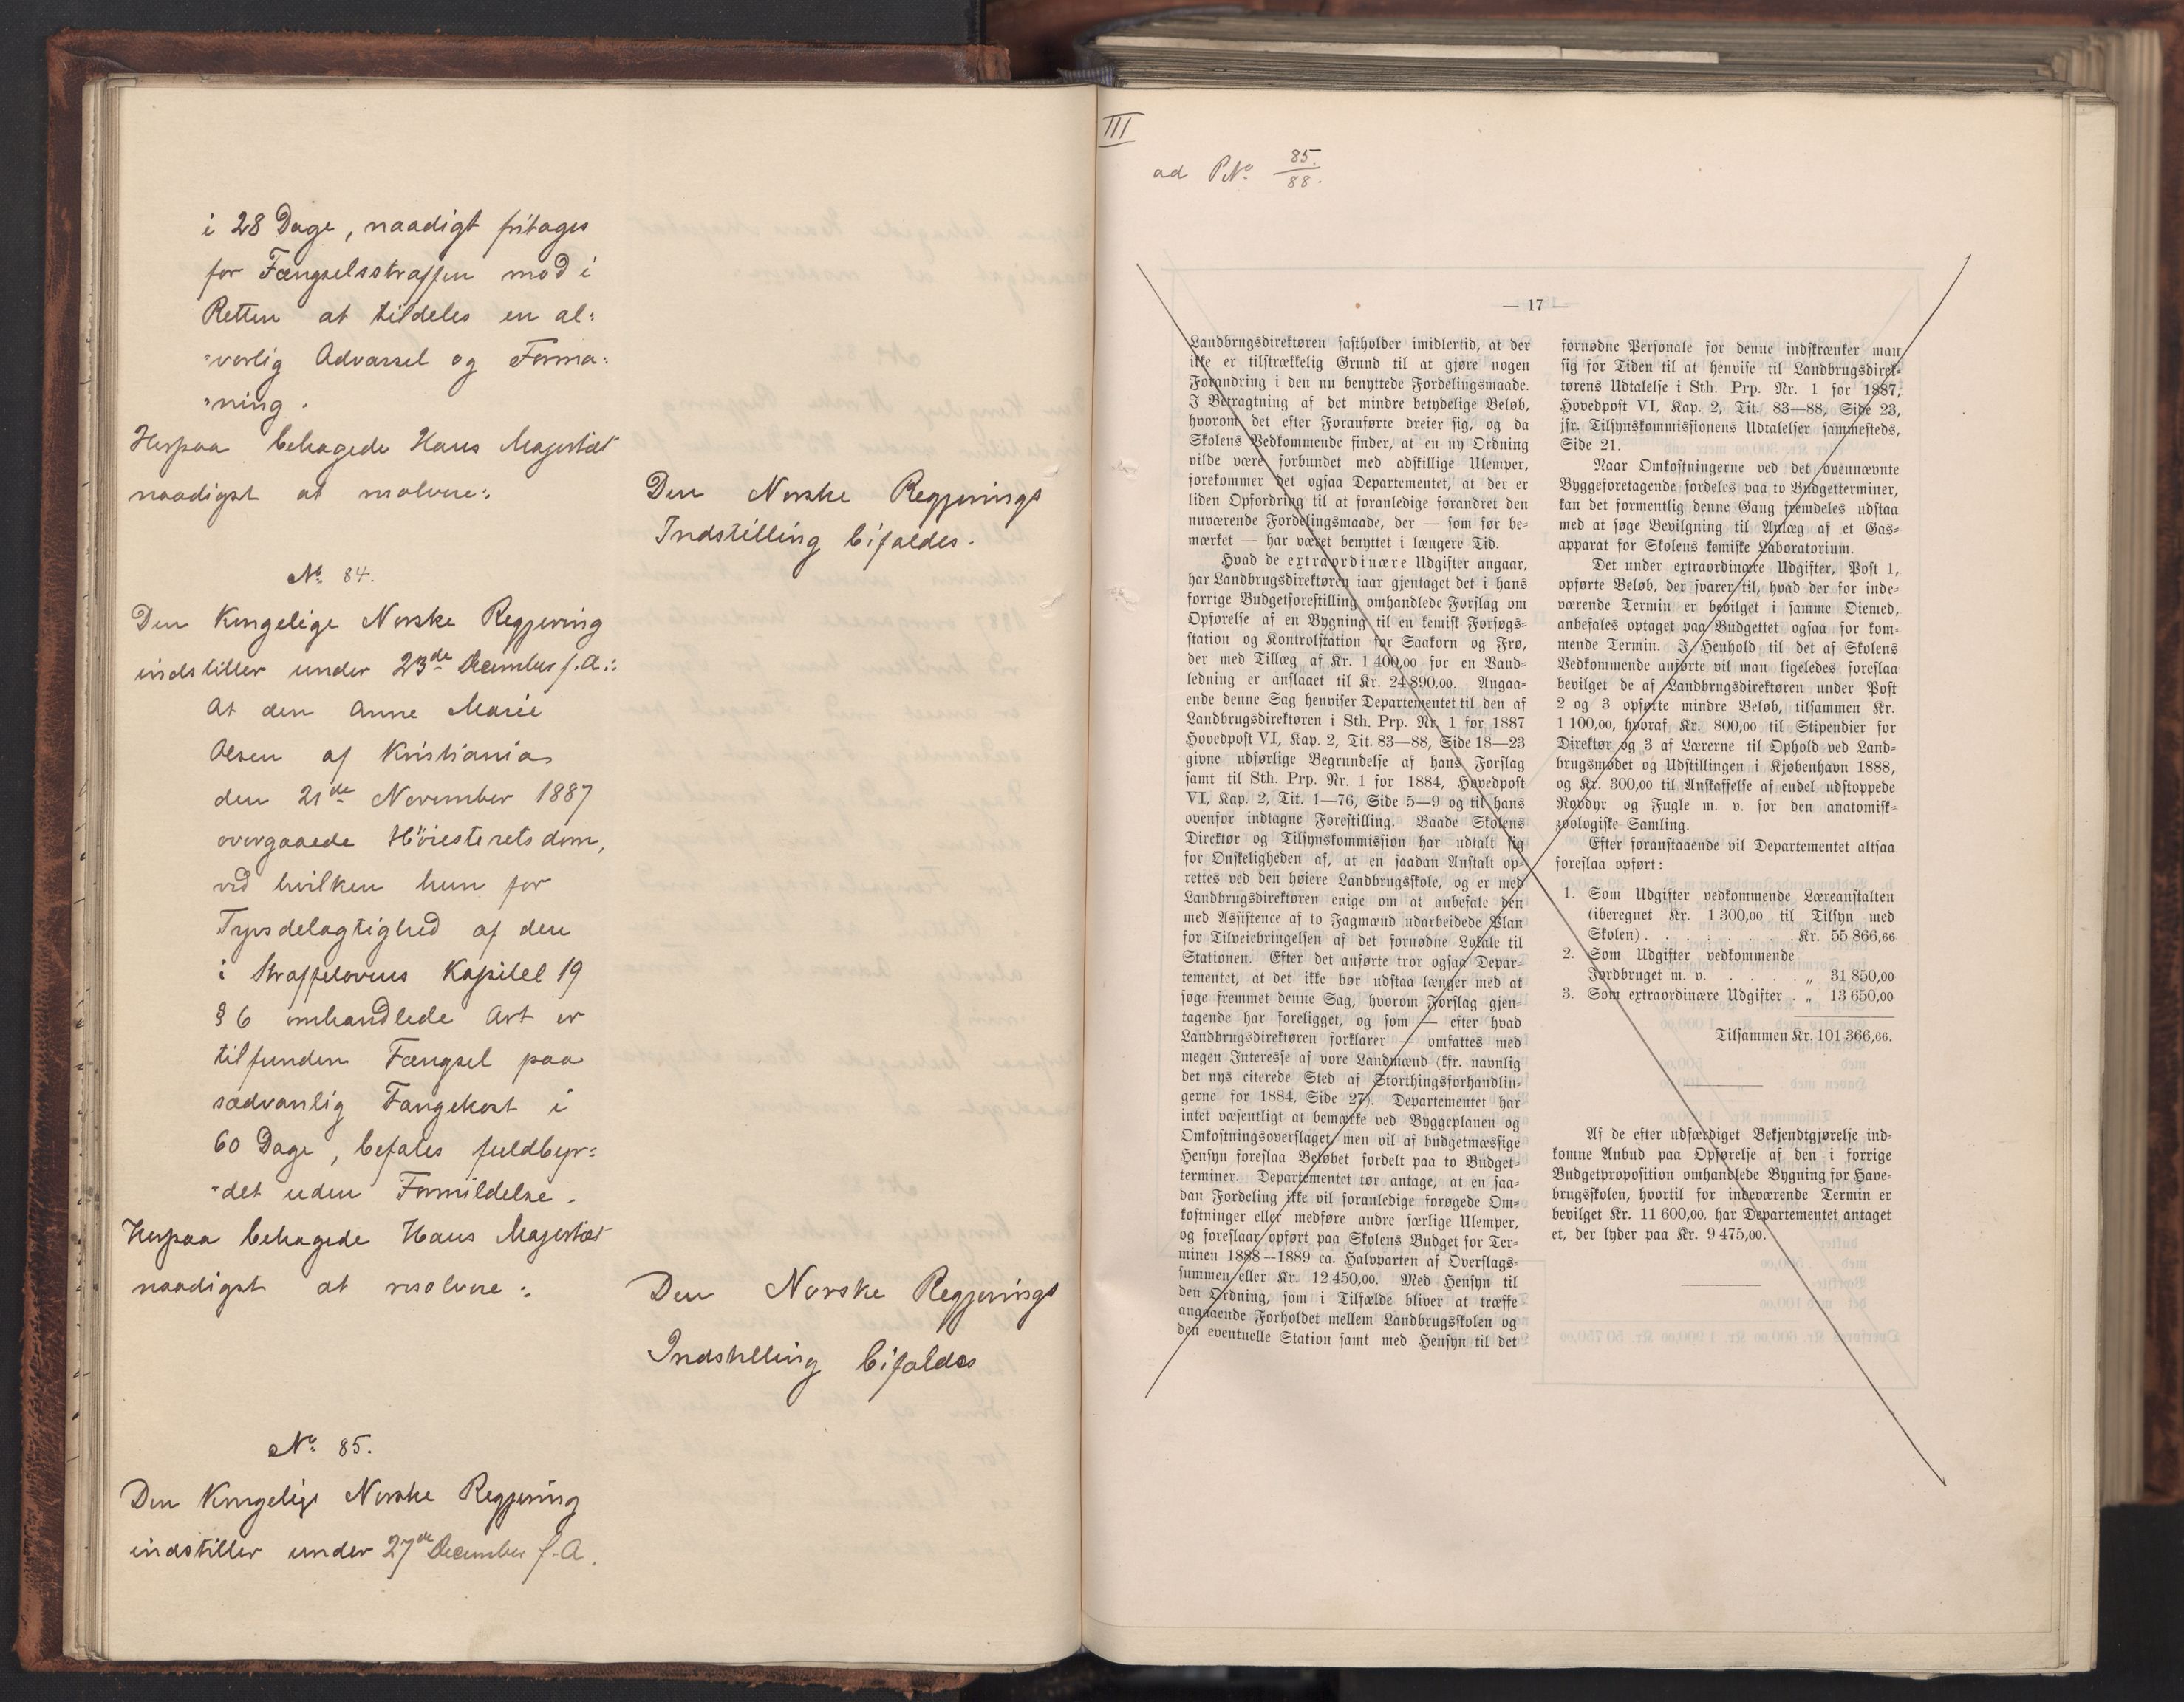 i 28 Dage, naadigt fritages
for Fængselsstraffen mod i
Retten at tildeles en al:
"vorlig Advarsel og Forma:
"ning.
Herpaa behagede Hans Majestæt
naadigst at resolvere:
Den Norske Regjerings
Indstilling bifaldes.
No. 84.
Den Kongelige Norske Regjering
indstiller under 23de December f.A.:
At den Anne Marie
Olsen af Kristiania
den 21de November 1887
overgaaede Höiesteretsdom,
ved hvilken hun for
Tyvsdelagtighed af den
i Straffelovens Kapitel 19
§ 6 omhandlede Art er
tilfunden Fængsel paa
sædvanlig Fangekost i
60 Dage, befales fuldbyr=
-det uden Formildelse.
Herpaa behagede Hans Majestæt
naadigst at resolvere:
Den Norske Regjerings
Indstilling bifaldes
No. 85.
Den Kongelige Norske Regjering
indstiller under 27de December f.A.
III
ad PNo. 85./88.
— 17 —
Landbrugsdirektøren fastholder imidlertid, at der
ikke er tilstrækkelig Grund til at gjøre nogen
Forandring i den nu benyttede Fordelingsmaade.
I Betragtning af det mindre betydelige Beløb,
hvorom det efter Foranførte dreier sig, og da
Skolens Vedkommende finder, at en ny Ordning
vilde være forbundet med adskillige Ulemper,
forekommer det ogsaa Departementet, at der er
liden Opfordring til at foranledige forandret den
nuværende Fordelingsmaade, der — som før be-
mærket — har været benyttet i længere Tid.
Hvad de extraordinære Udgifter angaar,
har Landbrugsdirektøren iaar gjentaget det i hans
forrige Budgetforestilling omhandlede Forslag om
Opførelse af en Bygning til en kemisk Forsøgs-
station og Kontrolstation for Saakorn og Frø,
der med Tillæg af Kr. 1 400,00 for en Vand-
ledning er anslaaet til Kr. 24 890,00. Angaa-
ende denne Sag henviser Departementet til den af
Landbrugsdirektøren i Sth. Prp. Nr. 1 for 1887
Hovedpost VI, Kap. 2, Tit. 83—88, Side 18—23
givne udførlige Begrundelse af hans Forslag
samt til Sth. Prp. Nr. 1 for 1884, Hovedpost
VI, Kap. 2, Tit. 1—76, Side 5—9 og til hans
ovenfor indtagne Forestilling. Baade Skolens
Direktør og Tilsynskommission har udtalt sig
for Ønskeligheden af, at en saadan Anstalt op-
rettes ved den høiere Landbrugsskole, og er med
Landbrugsdirektøren enige om at anbefale den
med Assistence af to Fagmænd udarbeidede Plan
for Tilveiebringelsen af det fornødne Lokale til
Stationen. Efter det anførte tror ogsaa Depar-
tementet, at det ikke bør udstaa længer med at
søge fremmet denne Sag, hvorom Forslag gjen-
tagende har foreligget, og som — efter hvad
Landbrugsdirektøren forklarer — omfattes med
megen Interesse af vore Landmænd (kfr. navnlig
det nys citerede Sted af Storthingsforhandlin-
gerne for 1884, Side 27). Departementet har
intet væsentligt at bemærke ved Byggeplanen og
Omkostningsoverslaget, men vil af budgetmæssige
Hensyn foreslaa Beløbet fordelt paa to Budget-
terminer. Departementet tør antage, at en saa-
dan Fordeling ikke vil foranledige forøgede Om-
kostninger eller medføre andre særlige Ulemper,
og foreslaar opført paa Skolens Budget for Ter-
minen 1888—1889 ca. Halvparten af Overslags-
summen eller Kr. 12 450,00. Med Hensyn til
den Ordning, som i Tilfælde bliver at træffe
angaaende Forholdet mellem Landbrugsskolen og
den eventuelle Station samt med Hensyn til det
fornødne Personale for denne indskrænker man
sig for Tiden til at henvise til Landbrugsdirek-
tørens Udtalelse i Sth. Prp. Nr. 1 for 1887,
Hovedpost VI, Kap. 2, Tit. 83—88, Side 23,
jfr. Tilsynskommissionens Udtalelser sammesteds,
Side 21.
Naar Omkostningerne ved det ovennævnte
Byggeforetagende fordeles paa to Budgetterminer,
kan det formentlig denne Gang fremdeles udstaa
med at søge Bevilgning til Anlæg af et Gas-
apparat for Skolens kemiske Laboratorium.
Det under extraordinære Udgifter, Post 1,
opførte Beløb, der svarer til, hvad der for inde-
værende Termin er bevilget i samme Øiemed,
anbefales optaget paa Budgettet ogsaa for kom-
mende Termin. I Henhold til det af Skolens
Vedkommende anførte vil man ligeledes foreslaa
bevilget de af Landbrugsdirektøren under Post
2 og 3 opførte mindre Beløb, tilsammen Kr.
1 100,00, hvoraf Kr. 800,00 til Stipendier for
Direktør og 3 af Lærerne til Ophold ved Land-
brugsmødet og Udstillingen i Kjøbenhavn 1888,
og Kr. 300,00 til Anskaffelse af endel udstoppede
Rovdyr og Fugle m. v. for den anatomisk-
zoologiske Samling.
Efter foranstaaende vil Departementet altsaa
foreslaa opført:
1. Som Udgifter vedkommende Læreanstalten
(iberegnet Kr. 1 300,00 til Tilsyn med
Skolen) . . . . . . . Kr. 55 866,66
2. Som Udgifter vedkommende
Jordbruget m. v. . . . . „ 31 850,00
3. Som extraordinære Udgifter . „ 13 650,00
Tilsammen Kr. 101 366,66.
Af de efter udfærdiget Bekjendtgjørelse ind-
komne Anbud paa Opførelse af den i forrige
Budgetproposition omhandlede Bygning for Have-
brugsskolen, hvortil for indeværende Termin er
bevilget Kr. 11 600,00, har Departementet antaget
et, der lyder paa Kr. 9 475,00.